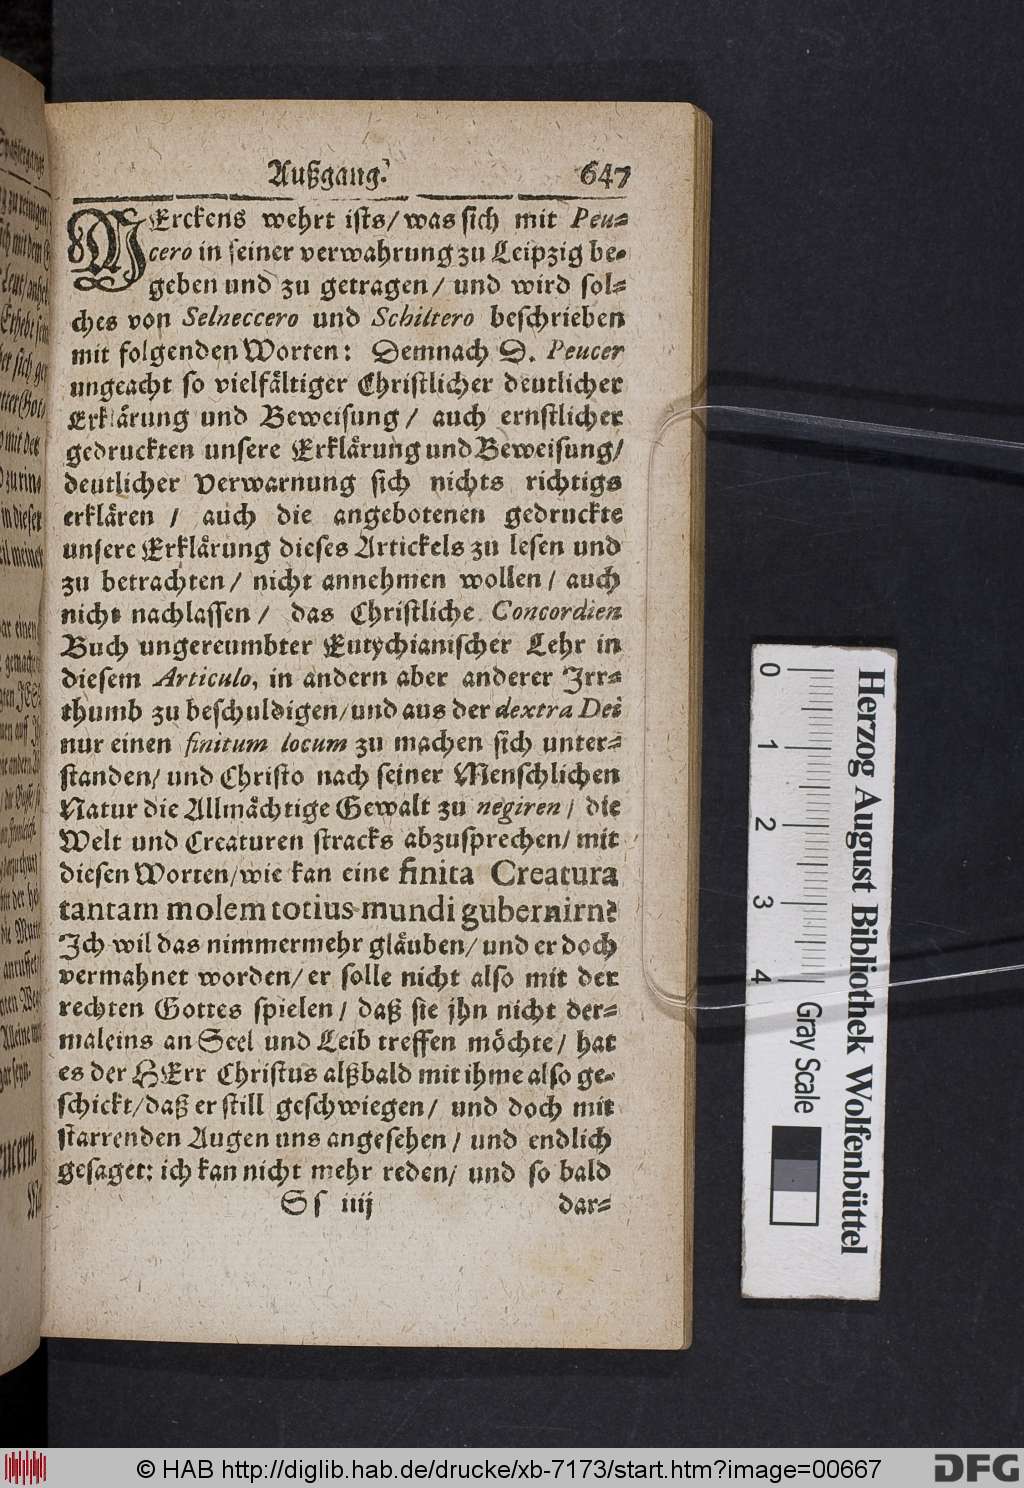 Außgang. 647
MErckens wehrt ists/ was sich mit Peu-
cero in seiner verwahrung zu Leipzig be-
geben und zu getragen/ und wird sol-
ches von Selneccero und Schiltero beschrieben
mit folgenden Worten: Demnach D. Peucer
ungeacht so vielfältiger Christlicher deutlicher
Erklärung und Beweisung/ auch ernstlicher
gedruckten unsere Erklärung und Beweisung/
deutlicher Verwarnung sich nichts richtigs
erklären / auch die angebotenen gedruckte
unsere Erklärung dieses Artickels zu lesen und
zu betrachten/ nicht annehmen wollen/ auch
nicht nachlassen/ das Christliche Concordien
Buch ungereumbter Eutychianischer Lehr in
diesem Articulo, in andern aber anderer Irr-
thumb zu beschuldigen/ und aus der dextra Dei
nur einen finitum locum zu machen sich unter-
standen/ und Christo nach seiner Menschlichen
Natur die Allmächtige Gewalt zu negiren/ die
Welt und Creaturen stracks abzusprechen/ mit
diesen Worten/ wie kan eine finita Creatura
tantam molem totius mundi gubernirn?
Ich wil das nimmermehr gläuben/ und er doch
vermahnet worden/ er solle nicht also mit der
rechten Gottes spielen/ daß sie jhn nicht der-
maleins an Seel und Leib treffen möchte/ hat
es der HErr Christus alßbald mit ihme also ge-
schickt/ daß er still geschwiegen/ und doch mit
starrenden Augen uns angesehen/ und endlich
gesaget: ich kan nicht mehr reden/ und so bald
Ss iiij dar-
0 1 2 3 4
Herzog August Bibliothek Wolfenbüttel
Gray Scale
© HAB http://diglib.hab.de/drucke/xb-7173/start.htm?image=00667
DFG